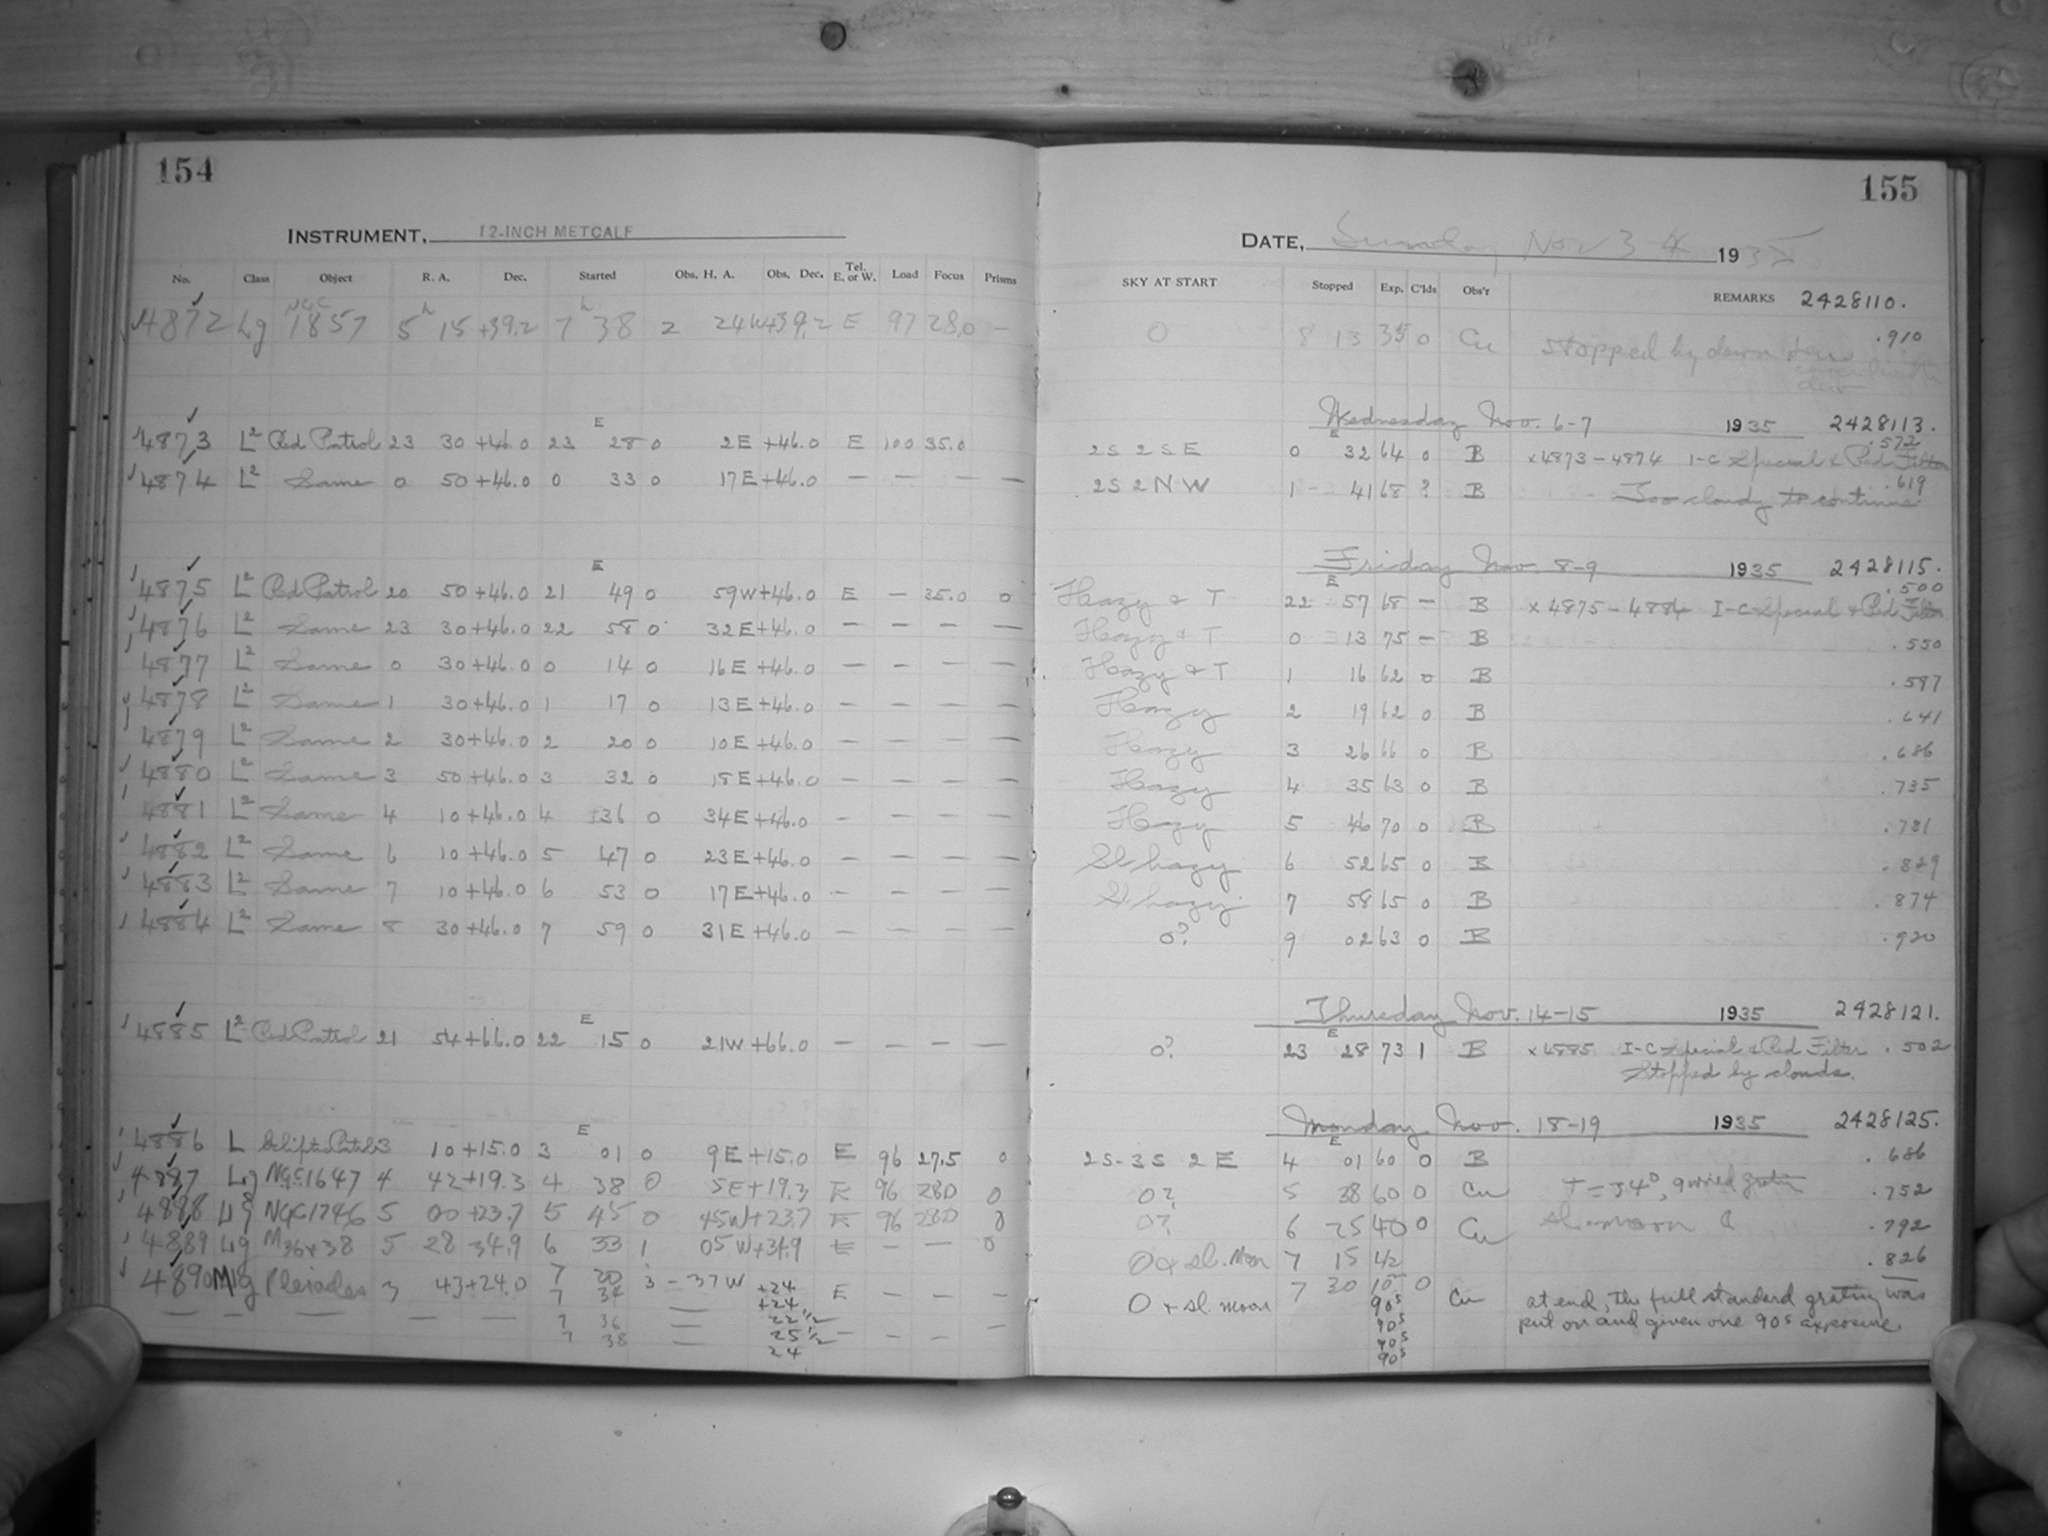 154
INSTRUMENT, 12-INCH METCALF
No. Class Object R. A. Dec. Started Obs. H. A. Obs. Dec. Tel. E. or W. Load Focus Prisms
4872 Lg NGC 1857 5h 15 +39.2 7h 38 2 24W +39.2 E 97 28.0 —
4873 L2 Red Patrol 23 30 +46.0 23 E 28 0 2E +46.0 E 100 35.0
4874 L2 Same 0 50 +46.0 0 33 0 17E +46.0 — — — —
4875 L2 Red Patrol 20 50 +46.0 21 E 49 0 59W +46.0 E — 35.0 0
4876 L2 Same 23 30 +46.0 22 58 0 32E +46.0 — — — —
4877 L2 Same 0 30 +46.0 0 14 0 16E +46.0 — — — —
4878 L2 Same 1 30 +46.0 1 17 0 13E +46.0 — — — —
4879 L2 Same 2 30 +46.0 2 20 0 10E +46.0 — — — —
4880 L2 Same 3 50 +46.0 3 32 0 18E +46.0 — — — —
4881 L2 Same 4 10 +46.0 4 36 0 34E +46.0 — — — —
4882 L2 Same 6 10 +46.0 5 47 0 23E +46.0 — — — —
4883 L2 Same 7 10 +46.0 6 53 0 17E +46.0 — — — —
4884 L2 Same 8 30 +46.0 7 59 0 31E +46.0 — — — —
4885 L2 Red Patrol 21 54 +66.0 22 E 15 0 21W +66.0 — — — —
4886 L 3 10 +15.0 3 E 01 0 9E +15.0 E 96 27.5 0
4887 Lg NGC 1647 4 42 +19.3 4 38 0 5E +19.3 E 96 28.0 0
4888 Lg NGC 1746 5 00 +23.7 5 45 0 45W +23.7 E 96 28.0 0
4889 Lg M36+38 5 28 34.9 6 33 1 05W +34.9 E — — 0
4890 Mlg Pleiades 3 43 +24.0 7 20 3 - 37W +24 E — — —
7 34 +24
7 36 22 1/2
7 38 25 1/2
24
155
DATE, Sunday Nov 3-4 1935
SKY AT START Stopped Exp. C'lds Obs'r REMARKS 2428110.
0 8 13 35 0 Cu stopped by dawn lens .910
covered with
dew
Wednesday Nov. 6-7 1935 2428113.
2S 2SE 0 E 32 64 0 B x4873-4874 I-C Special & Red Filter .572
2S 2NW 1 41 68 ? B Too cloudy to continue .619
Friday Nov. 8-9 1935 2428115.
Hazy & T 22 E 57 68 — B x4875-4884 I-C Special & Red Filter .500
Hazy & T 0 13 75 — B .550
Hazy & T 1 16 62 0 B .597
Hazy 2 19 62 0 B .641
Hazy 3 26 66 0 B .686
Hazy 4 35 63 0 B .735
Hazy 5 46 70 0 B .781
Sl hazy 6 52 65 0 B .829
Sl hazy 7 58 65 0 B .874
0? 9 02 63 0 B .920
Thursday Nov. 14-15 1935 2428121.
0? 23 E 28 73 1 B x4885 I-C Special & Red Filter .502
Stopped by clouds.
Monday Nov. 18-19 1935 2428125.
2S-3S 2E 4 E 01 60 0 B .686
0? 5 38 60 0 Cu T=34°, .752
0? 6 25 40 0 Cu sl. moon .792
0 & sl. Moon 7 15 42 .826
0 + sl. moon 7 30 10 0 Cu at end, the full standard grating was
90s put on and given one 90s exposure
90s
90s
90s